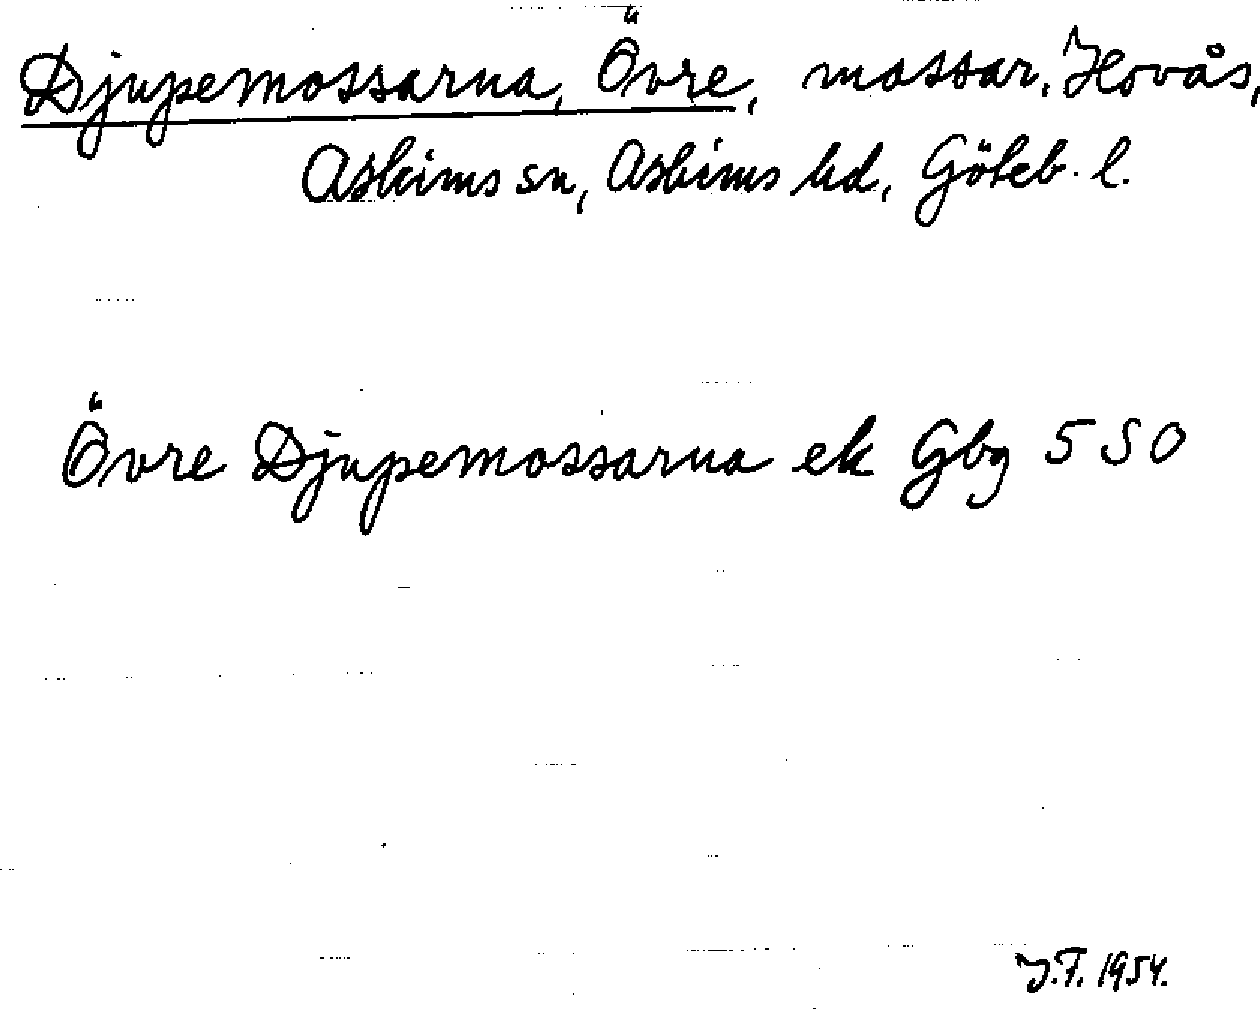 Djupemossarna, Övre, mossar, Hovås,
Askims sn, Askims hd, Göteb. l.
Övre Djupemossarna ek Gbg 5 SO
J.T. 1954.